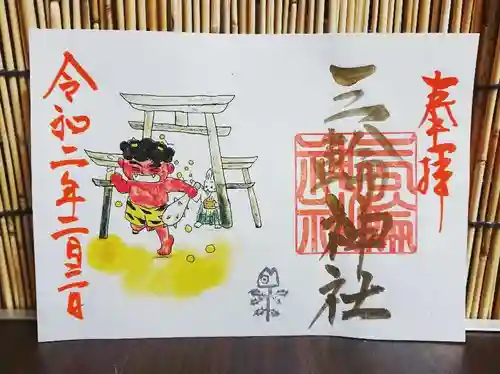 奉拝
三輪神社
三輪神社
令和二年二月三日